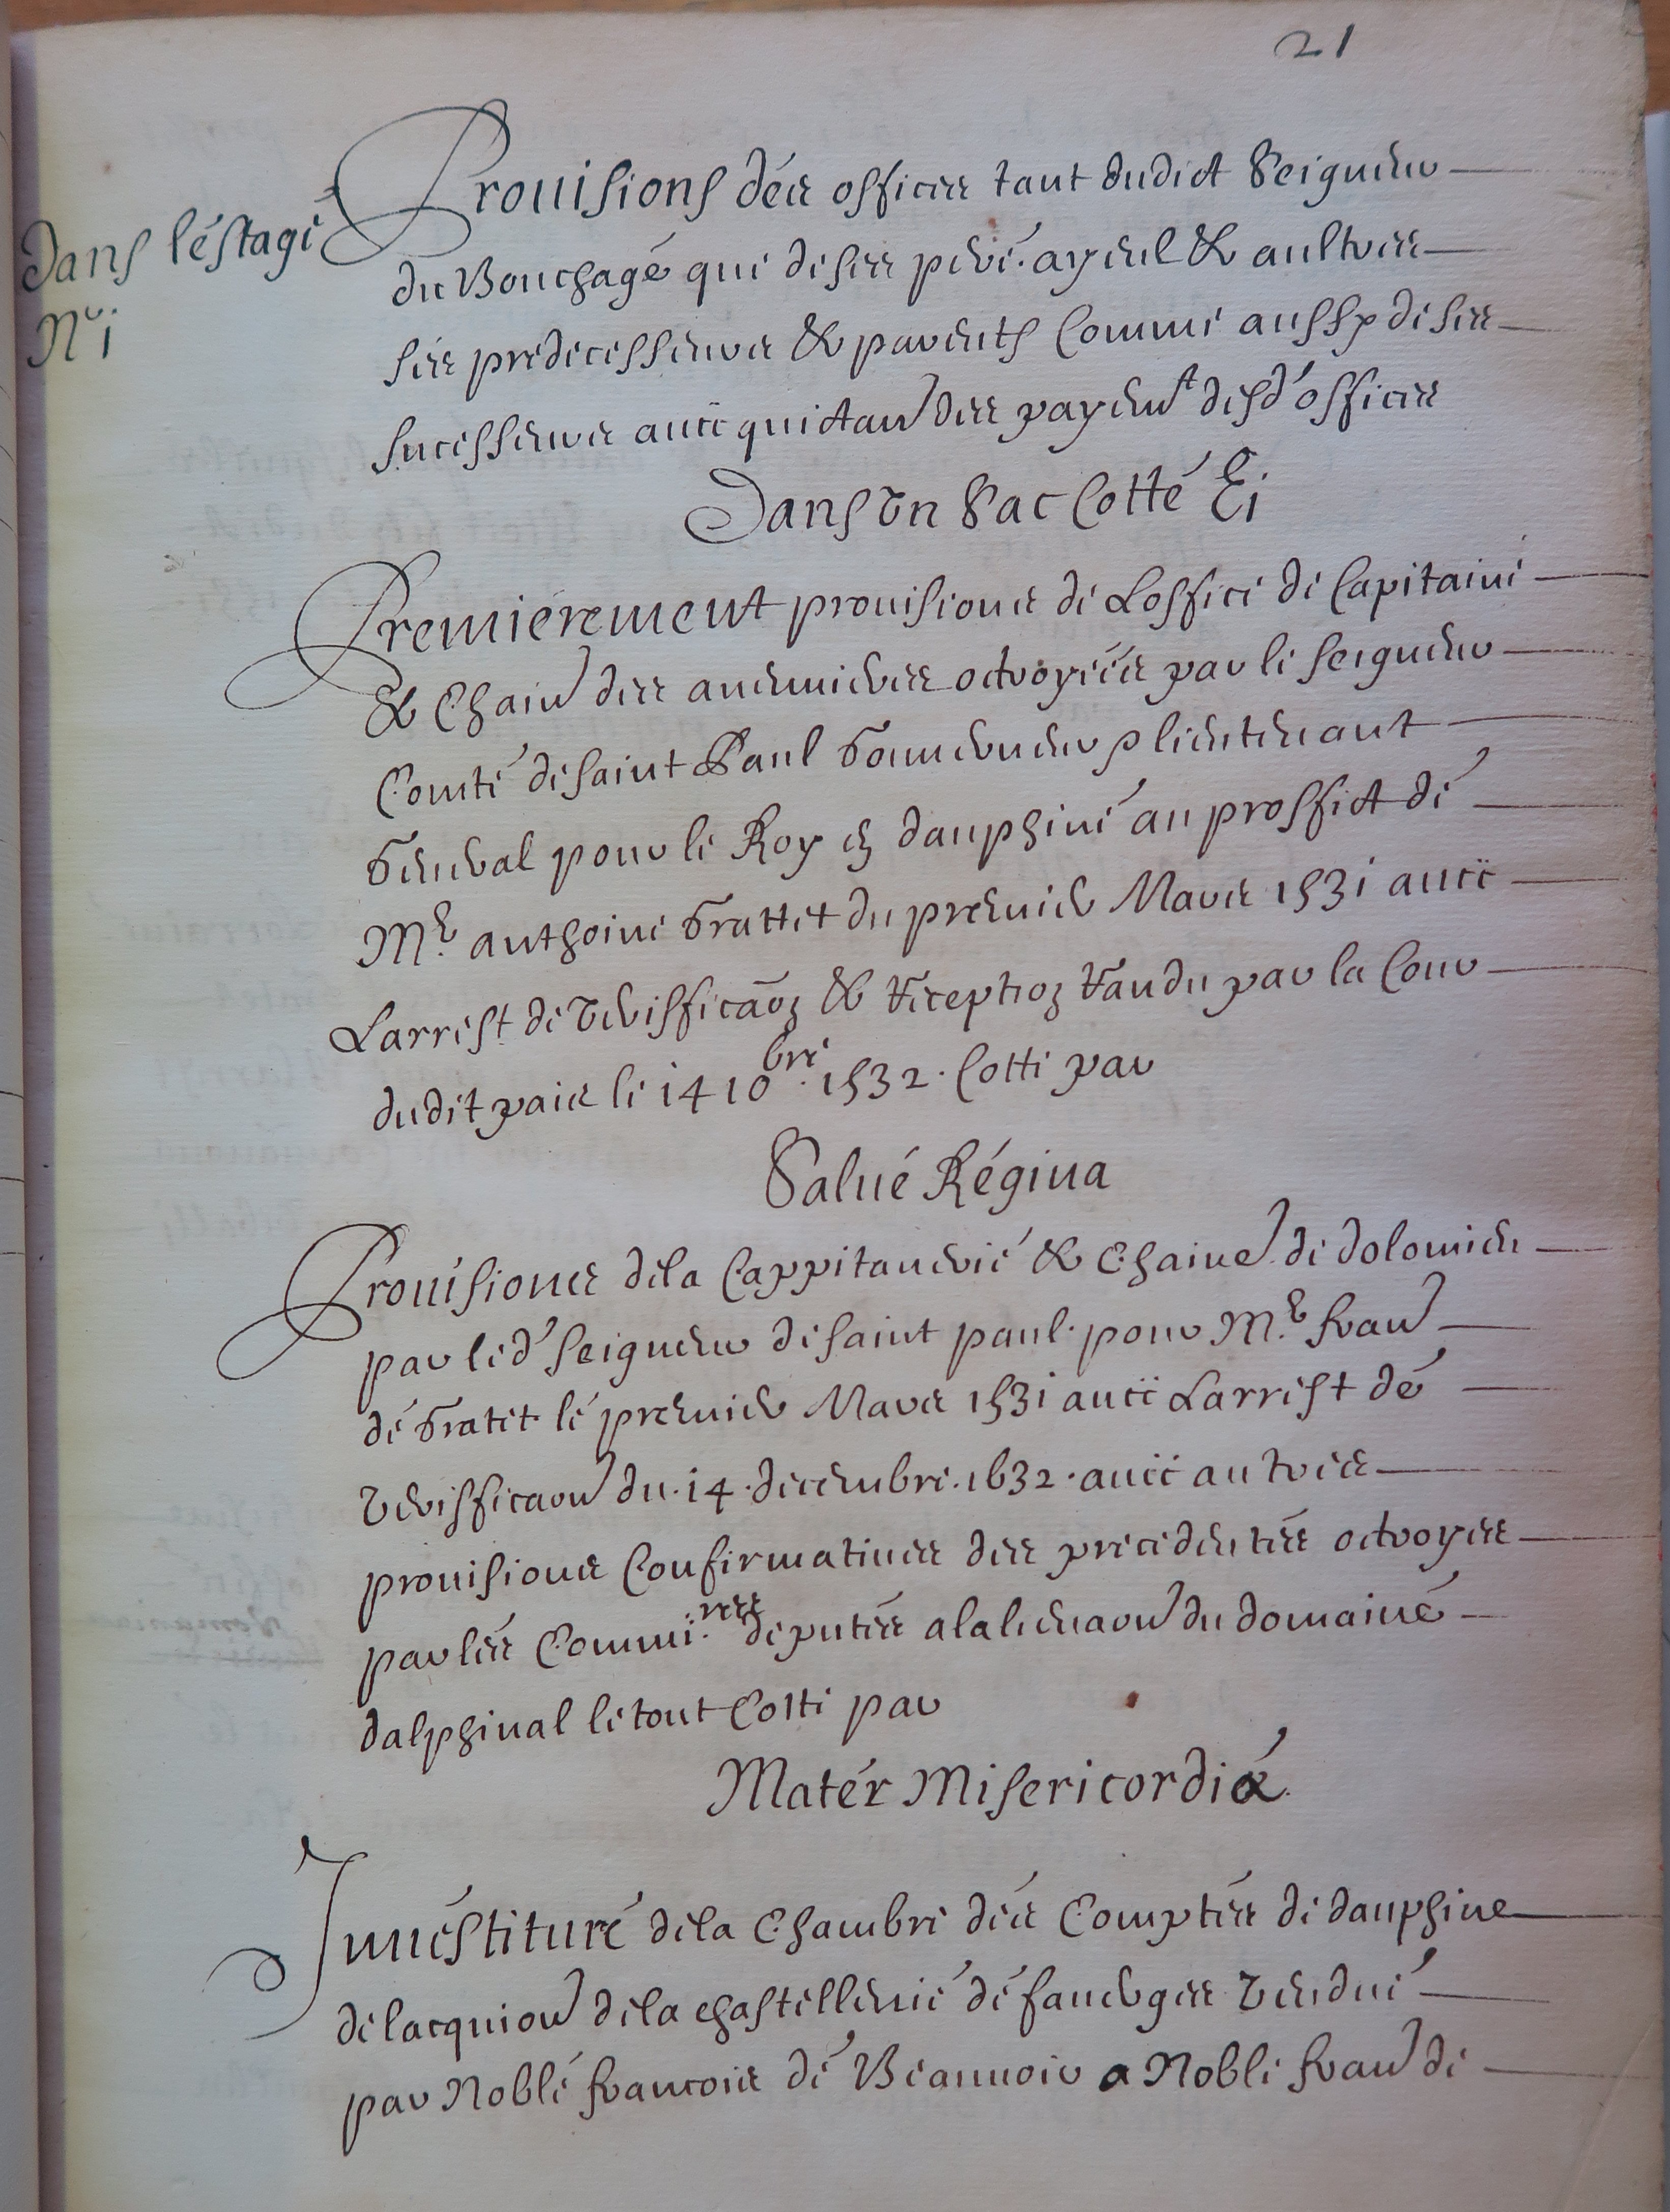 21
Dans l'éstage
N° i
Prouisions dés offices tant dudict Seigneur
du Bouchagé que deses peré ayeul & aultres
ses predecesseurs & parents Comme aussy deses
sucesseurs auec quictan des payemt desd' offices
Dans vn Sac Cotté Ei
Premierement prouisions de Loffice de Capitaine
& Chain des auenieres octroyées par le seigneur
Comte desaint Paul Gouuerneur lieutenant
General pour le Roy en dauphiné au proffict dé
Mr. anthoine Grattet du premier Mars 1531 auec
Larrest de veriffica̅on & Reception Randu par la Cour
dudit pais le 14 10bre. 1532. Cotte par
Salué Régina
Prouisions dela Cappitanerie & Chaine de dolomieu
par led' seigneur desaint paul. pour Mr. fran
dé Gratet le premier Mars 1531 auec Larrest dé
veriffica̅on du. 14. decembre. 1632. auec autres
prouisions Confirmatiues des precedentes octroyes
par les Commi.res deputes alalienaon du domainé
dalphinal le tout Cotte par
Matér Misericordiæ
Inuéstituré dela Chambre dés Comptes de dauphine
delacquion dela chastellenié dé fauerges venduë
par Noblé francois dé Beauuoir a Noble fran de